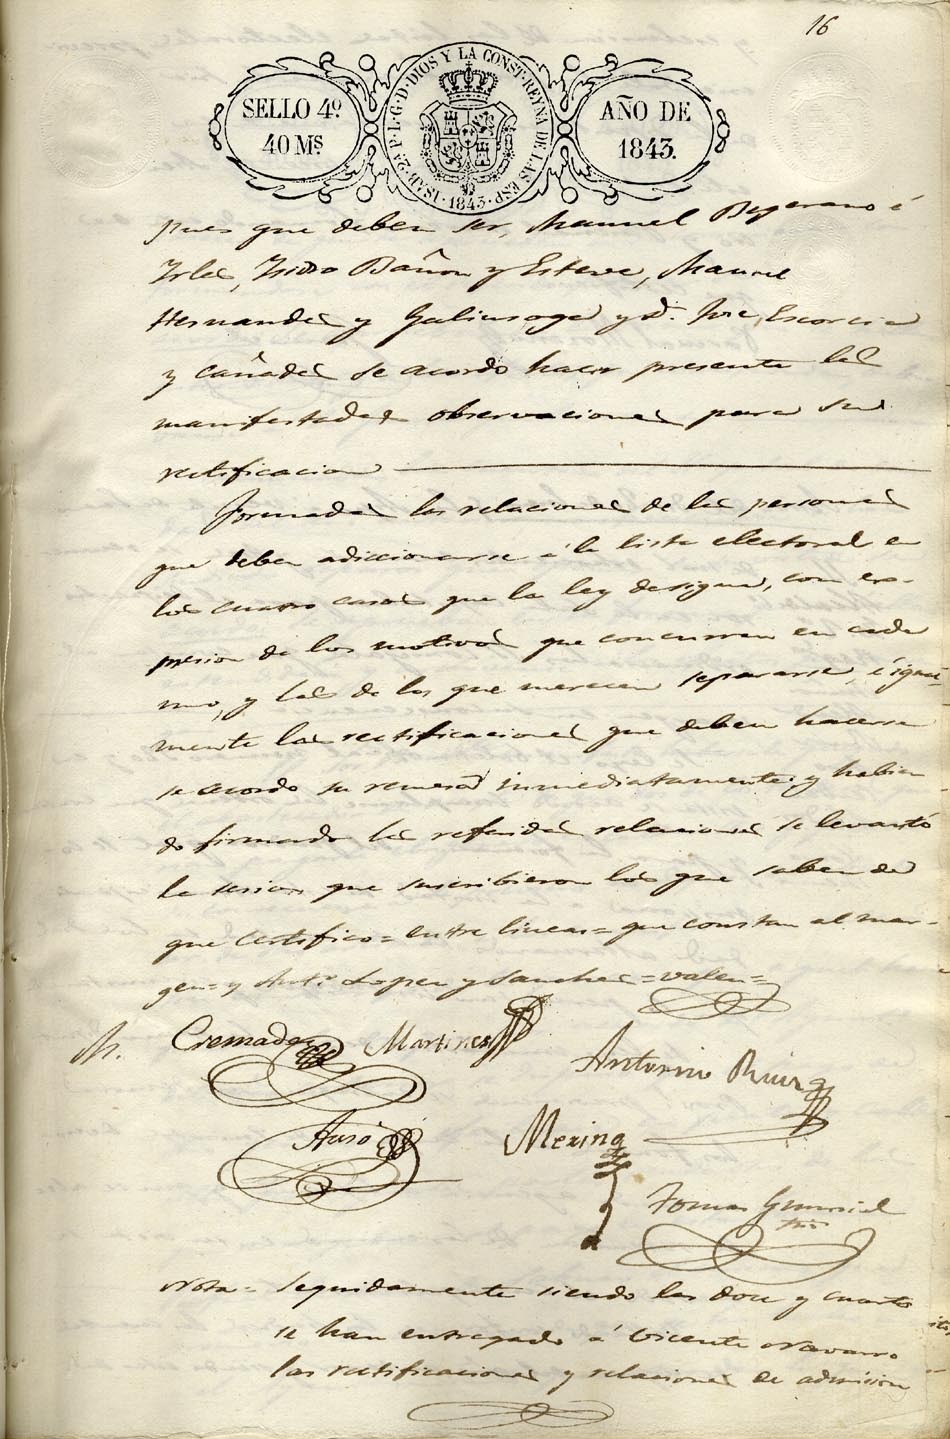 16
SELLO 4º.
40 Mˢ
ISAB. 2ª P. L. G. D. DIOS Y LA CONST. REYNA DE LAS ESP.
1843
AÑO DE
1843.
pues que deben ser, Manuel Bejerano é
Irles, Isidro Bañon y Esteve, Manuel
Hernandes y Galiusoga y D. Jose Escorcia
y Cañades se acordo hacer presente las
manifestadas observaciones para su
rectificacion
Formadas las relaciones de las personas
que deben adiccionarse á la lista electoral en
los cuatro casos que la ley designa, con ex-
presion de los motivos que concurren en cada
uno, y las de los que merecen separarse, é igual-
mente las rectificaciones que deben hacerse
se acordo su remesa inmediatamente y habien
do firmado las referidas relaciones se levantó
la sesion que suscribieron los que saben de
que certifico = entre lineas = que constan al mar-
gen = y Antº. Lopez y Sanches = valen =
M.
Cremades
Martines
Antonio Ruiz
Ausó
Merino
Tomas
Nota = Seguidamente siendo las doce y cuarto
se han entregado á Vicente Navarro
las rectificaciones y relaciones de admision